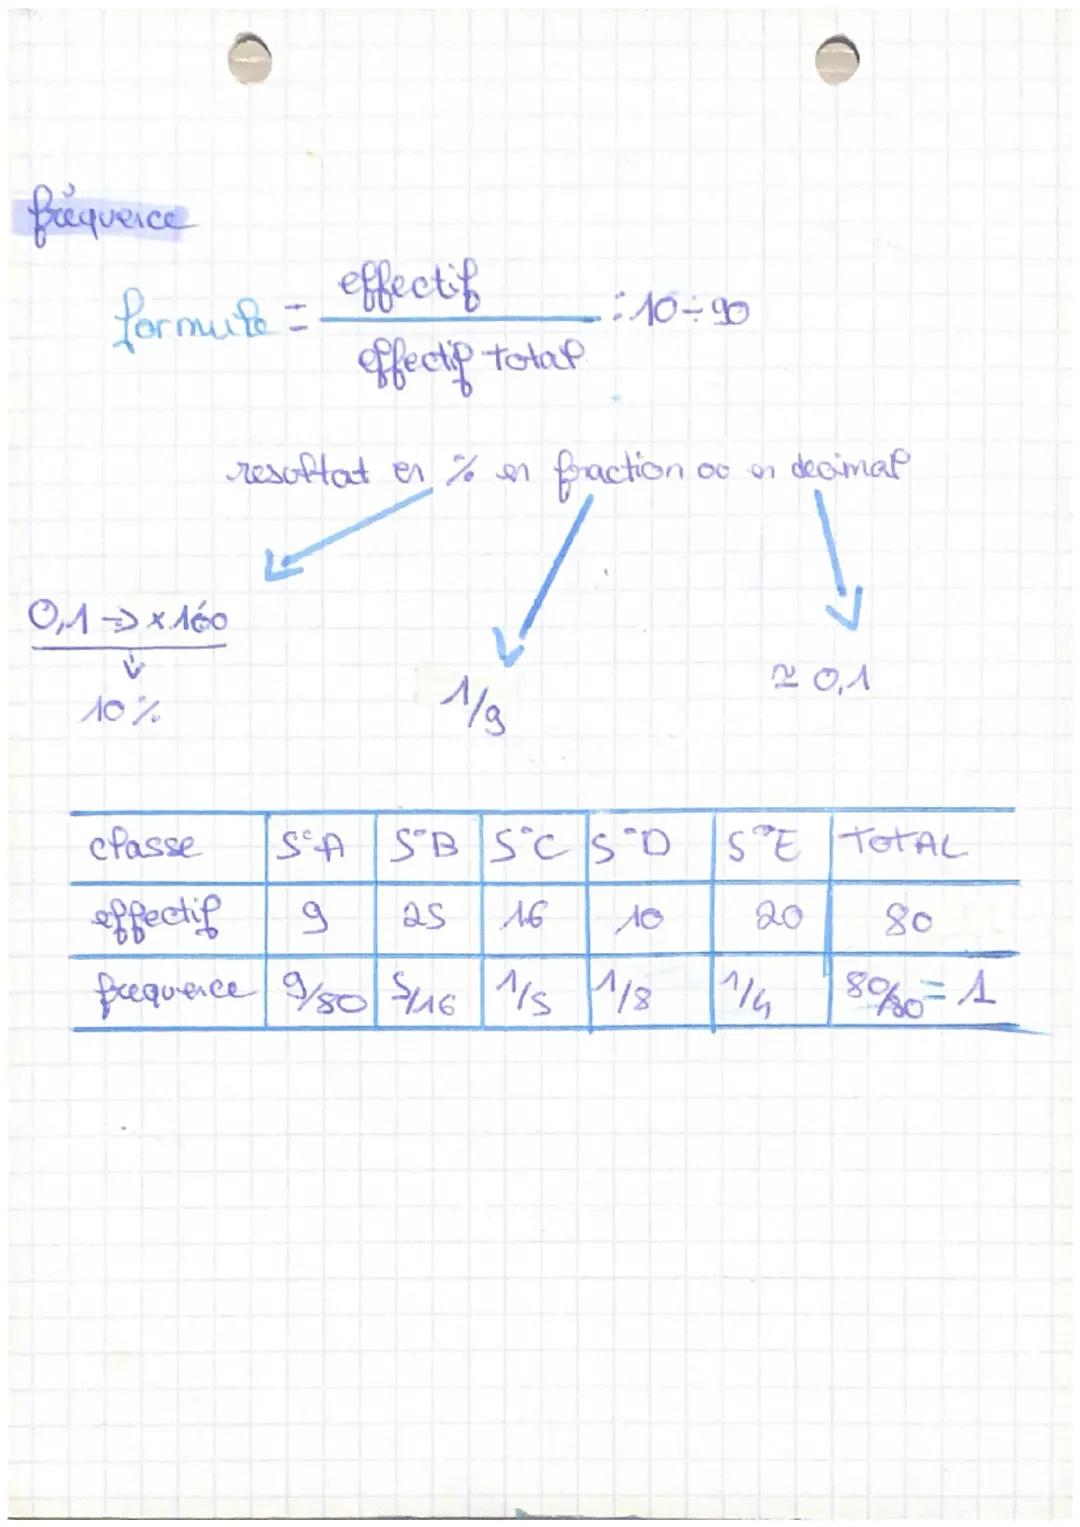 fréquence
formule = effectif / effectif total : 10 ÷ 90
resultat en % en fraction ou en decimal
0,1 → × 100
10 %
1/9
≃ 0,1
classe 5°A 5°B 5°C 5°D 5°E TOTAL
effectif 9 25 16 10 20 80
frequence 9/80 5/16 1/5 1/8 1/4 80/80 = 1